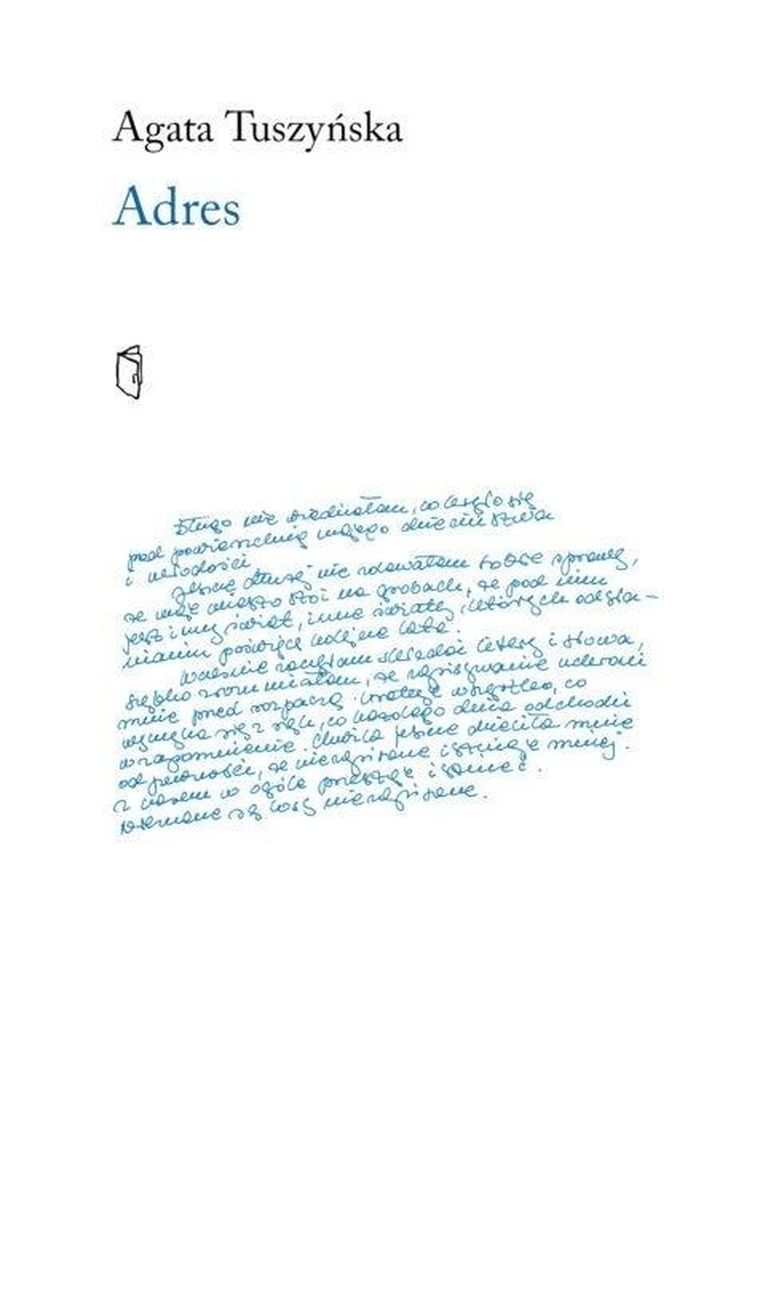 Agata Tuszyńska
Adres
Długo nie wiedziałam, co kryło się
pod powierzchnią mojego dzieciństwa
i młodości.
Jeszcze dłużej nie zdawałam sobie sprawy,
że moje miasto stoi na grobach, że pod nim
jest inny świat, inne światy, których odsła-
nianiu poświęcę kolejne lata.
Wcześnie zaczęłam składać litery i słowa,
szybko zrozumiałam, że zapisywanie uchroni
mnie przed rozpaczą. Uratuję wszystko, co
wymyka się z rąk, co każdego dnia odchodzi
w zapomnienie. Chwila jeszcze dzieliła mnie
od pewności, że niezapisane istnieje mniej.
z czasem w ogóle przestaje istnieć.
są losy niezapisane.